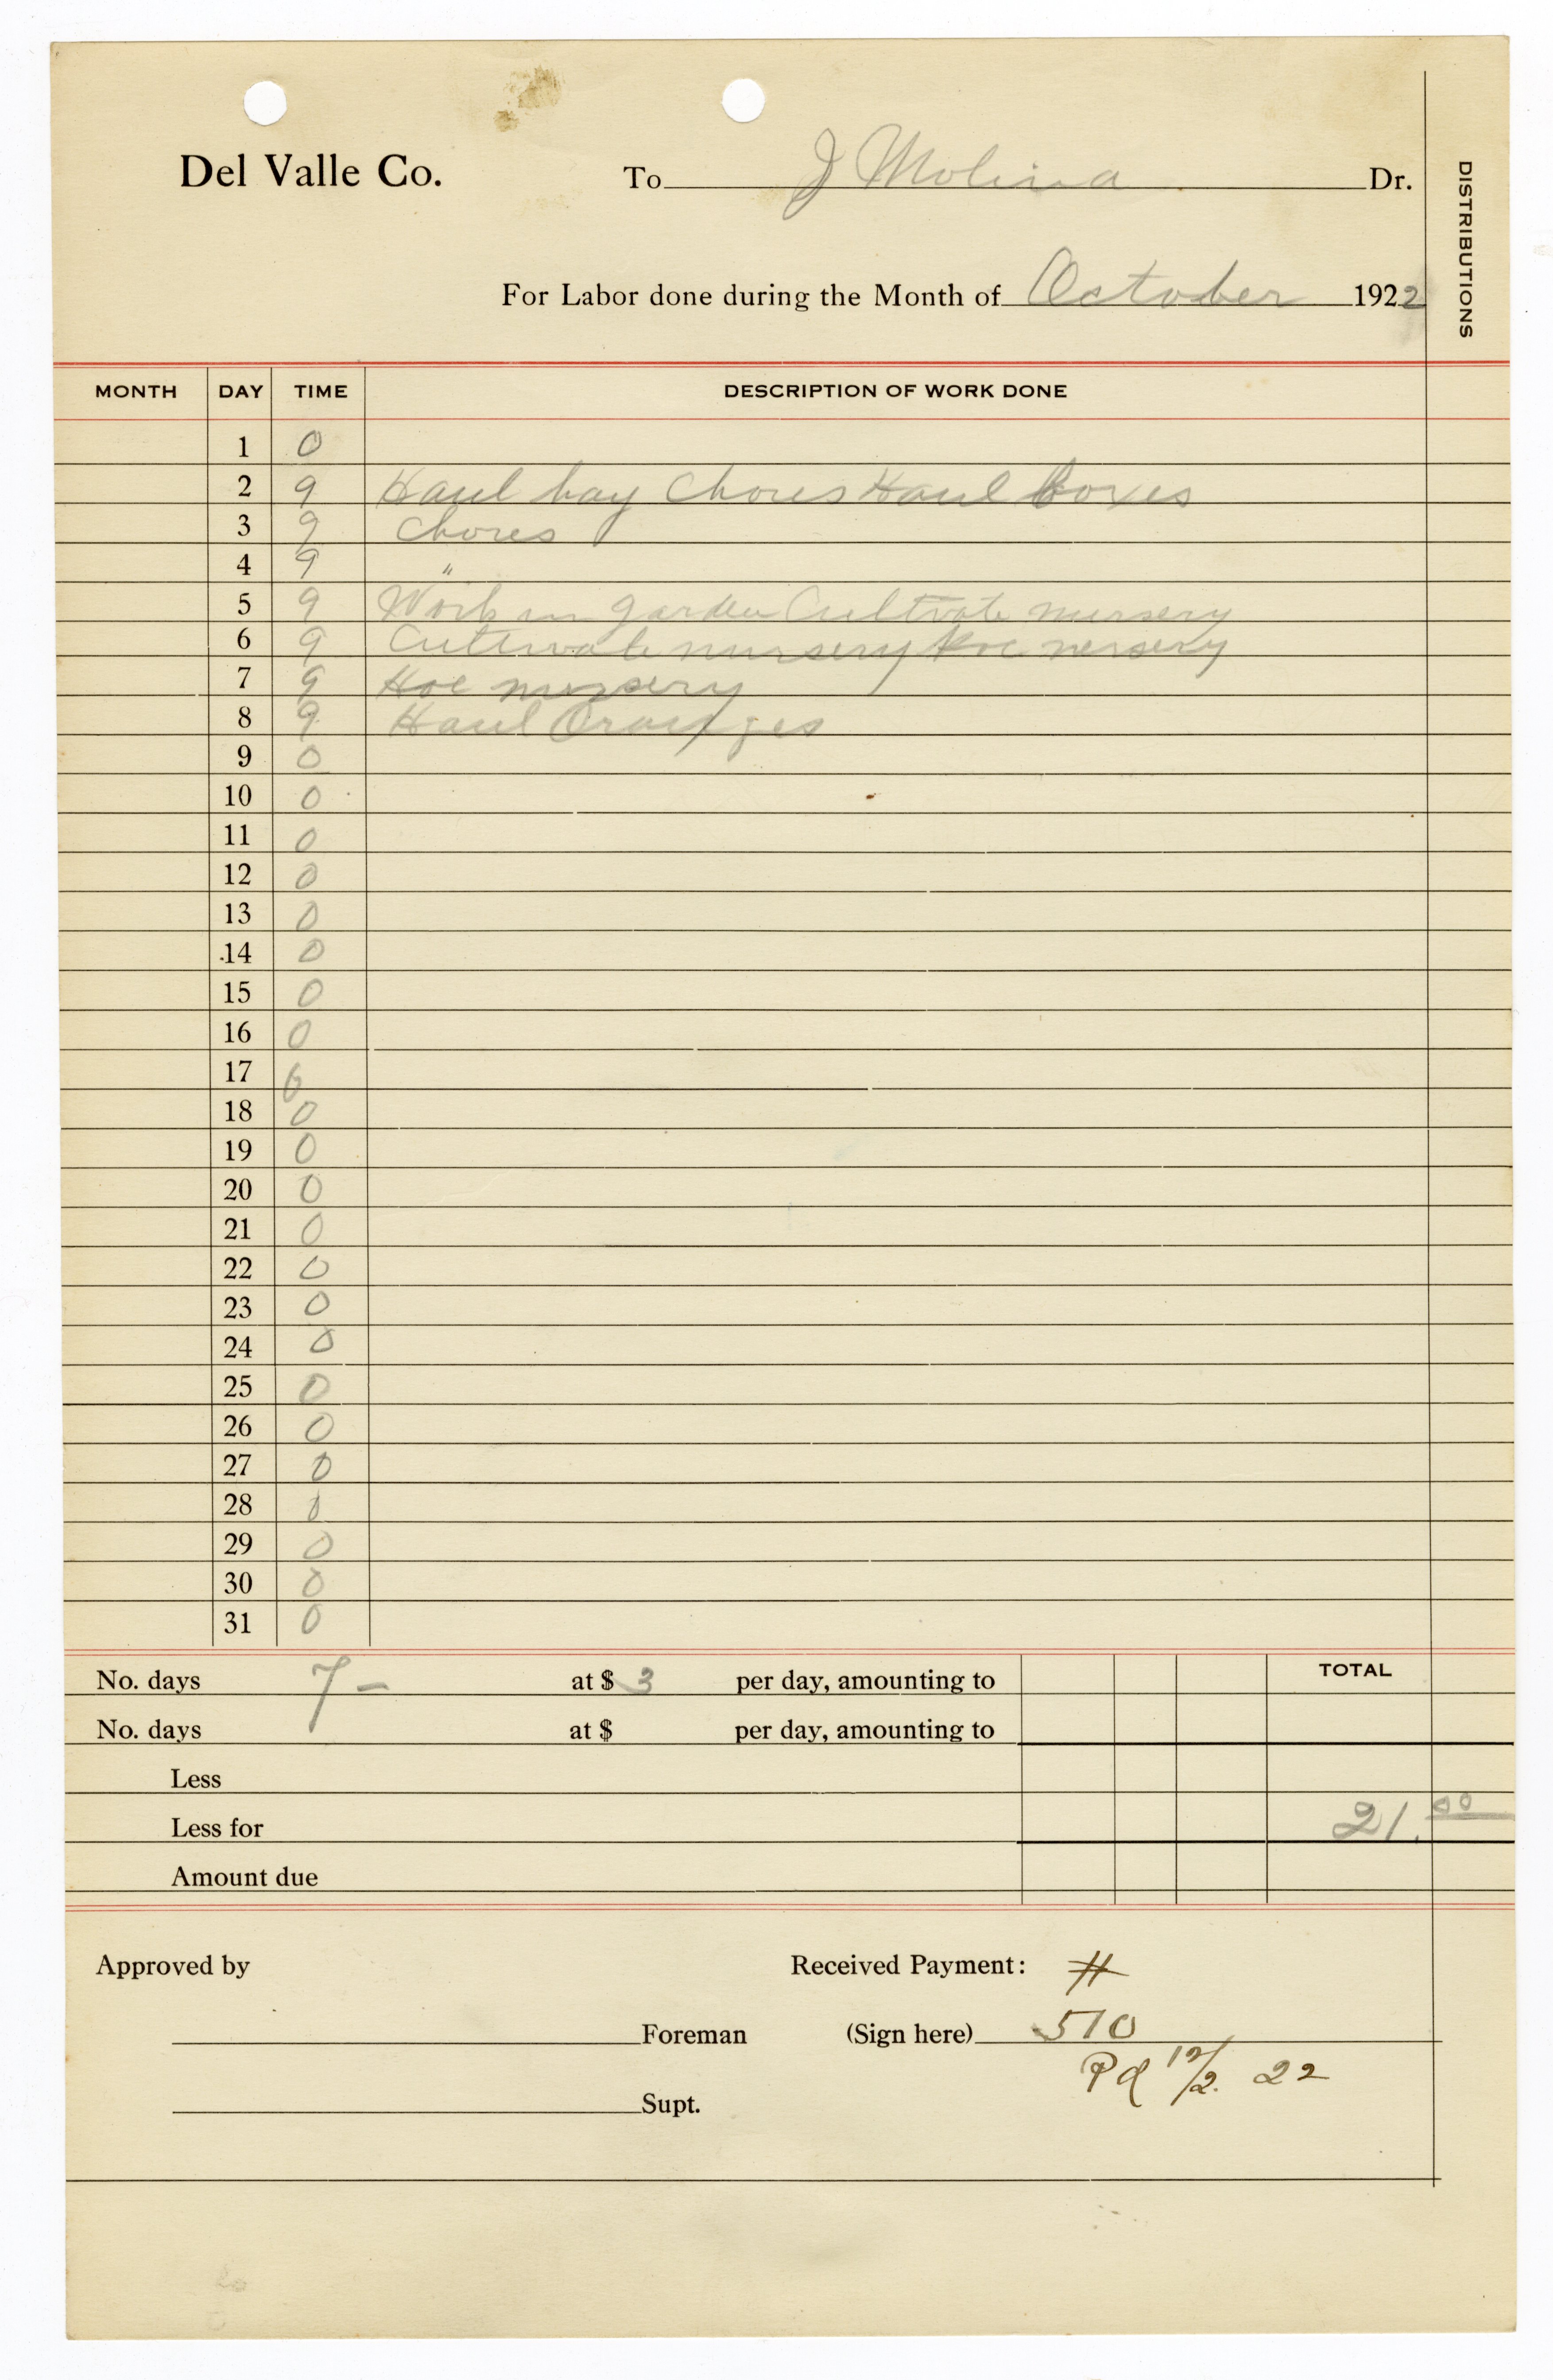 Del Valle Co. To J Molina Dr.
DISTRIBUTIONS
For Labor done during the Month of October 1922
MONTH DAY TIME DESCRIPTION OF WORK DONE
1 0
2 9 Haul hay Chores Haul Boxes
3 9 Chores
4 9 "
5 9 Work in garden Cultivate nursery
6 9 Cultivate nursery Hoe nersery
7 9 Hoe nursery
8 9 Haul Oranges
9 0
10 0
11 0
12 0
13 0
14 0
15 0
16 0
17 0
18 0
19 0
20 0
21 0
22 0
23 0
24 0
25 0
26 0
27 0
28 0
29 0
30 0
31 0
No. days 7 - at $ 3 per day, amounting to TOTAL
No. days at $ per day, amounting to
Less
Less for 21.00
Amount due
Approved by Received Payment: #
Foreman (Sign here) 510
Pd 12/2. 22
Supt.